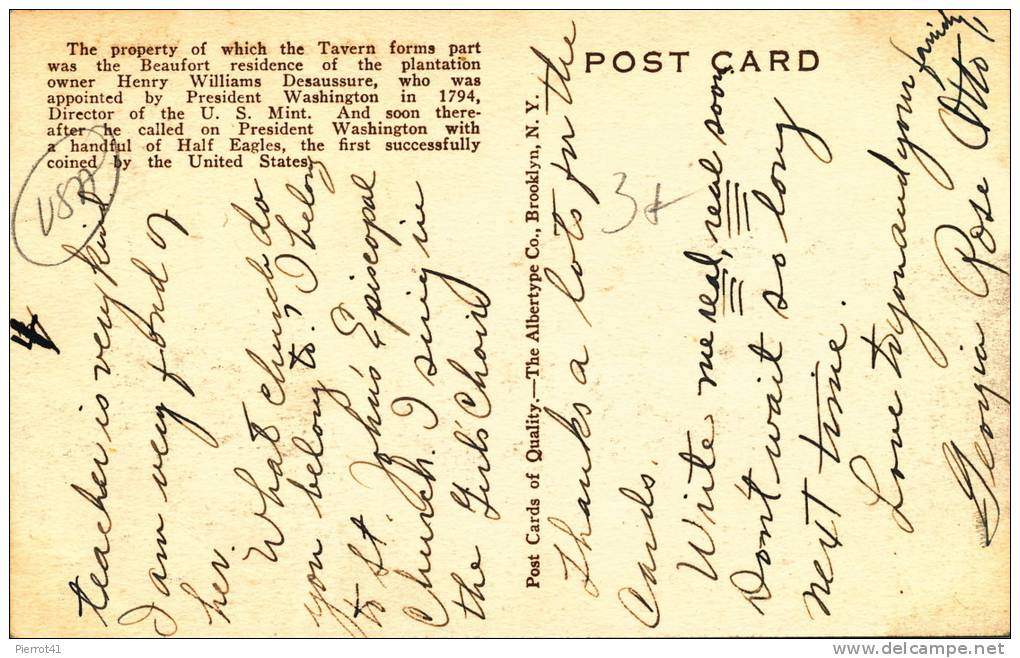 The property of which the Tavern forms part
was the Beaufort residence of the plantation
owner Henry Williams Desaussure, who was
appointed by President Washington in 1794,
Director of the U. S. Mint. And soon there-
after he called on President Washington with
a handful of Half Eagles, the first successfully
coined by the United States.
USA
4
teacher is very kind.
I am very fond of
her.
What church do
you belong to? I belong
to St. John's Episcopal
Church. I sing in
the Girls' Choir
Post Cards of Quality.—The Albertype Co., Brooklyn, N. Y.
POST CARD
Thanks a lots for the
Cards.
Write me real, real soon
Don't wait so long
next time.
Love to you and your family
Rose Otto
Pierrot41
www.delcampe.net